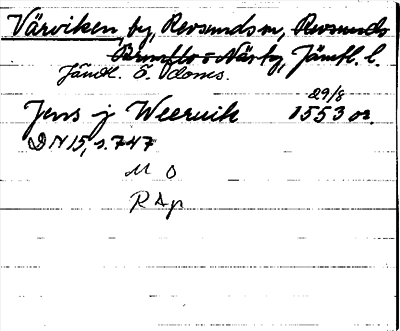 Värviken, by, Revsunds sn, Revsunds
Brunflo o Näsby, Jämtl. l.
Jämtl. Ö. Doms.
29/8
Jens j Weeruik 1553 or.
DN 15, s. 747
M O
R Ap